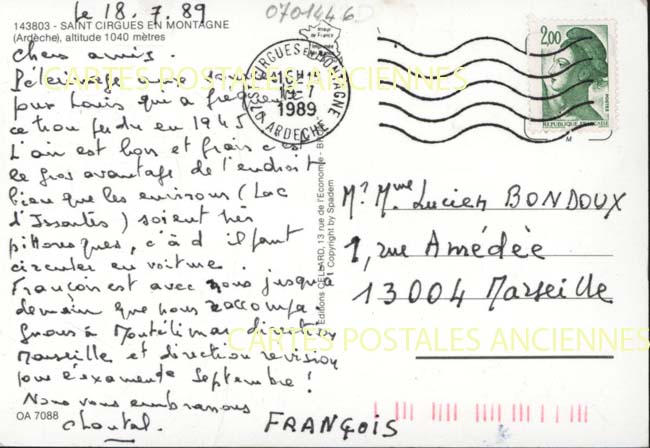 Le 18.7.89
143803 - SAINT CIRGUES EN MONTAGNE
(Ardèche), altitude 1040 mètres
070144 6
Chers amis.
Pèlerinage
pour Louis qui a fréquenté
ce trou perdu en 1945
L'air est bon et frais c'est
le gros avantage de l'endroit
bien que les environs (Lac
d'Issarlès) soient très
pittoresques, c'à d il faut
circuler en voiture.
François est avec nous jusqu'à
demain que nous raccompa-
gnons à Montélimar direction
Marseille et direction révision
pour l'examen de Septembre !
Nous vous embrassons
Chantal.
FRANÇOIS
OA 7088
Editions CELLARD, 13 rue de l'Economie - B
Copyright by Spadem
ST CIRGUES EN MONTAGNE
18-7
1989
07 ARDECHE
2,00
POSTES
REPUBLIQUE FRANÇAISE
M
Mr Mme Lucien BONDOUX
1, rue Amédée
13004 Marseille
CARTES POSTALES ANCIENNES
CARTES POSTALES ANCIENNES